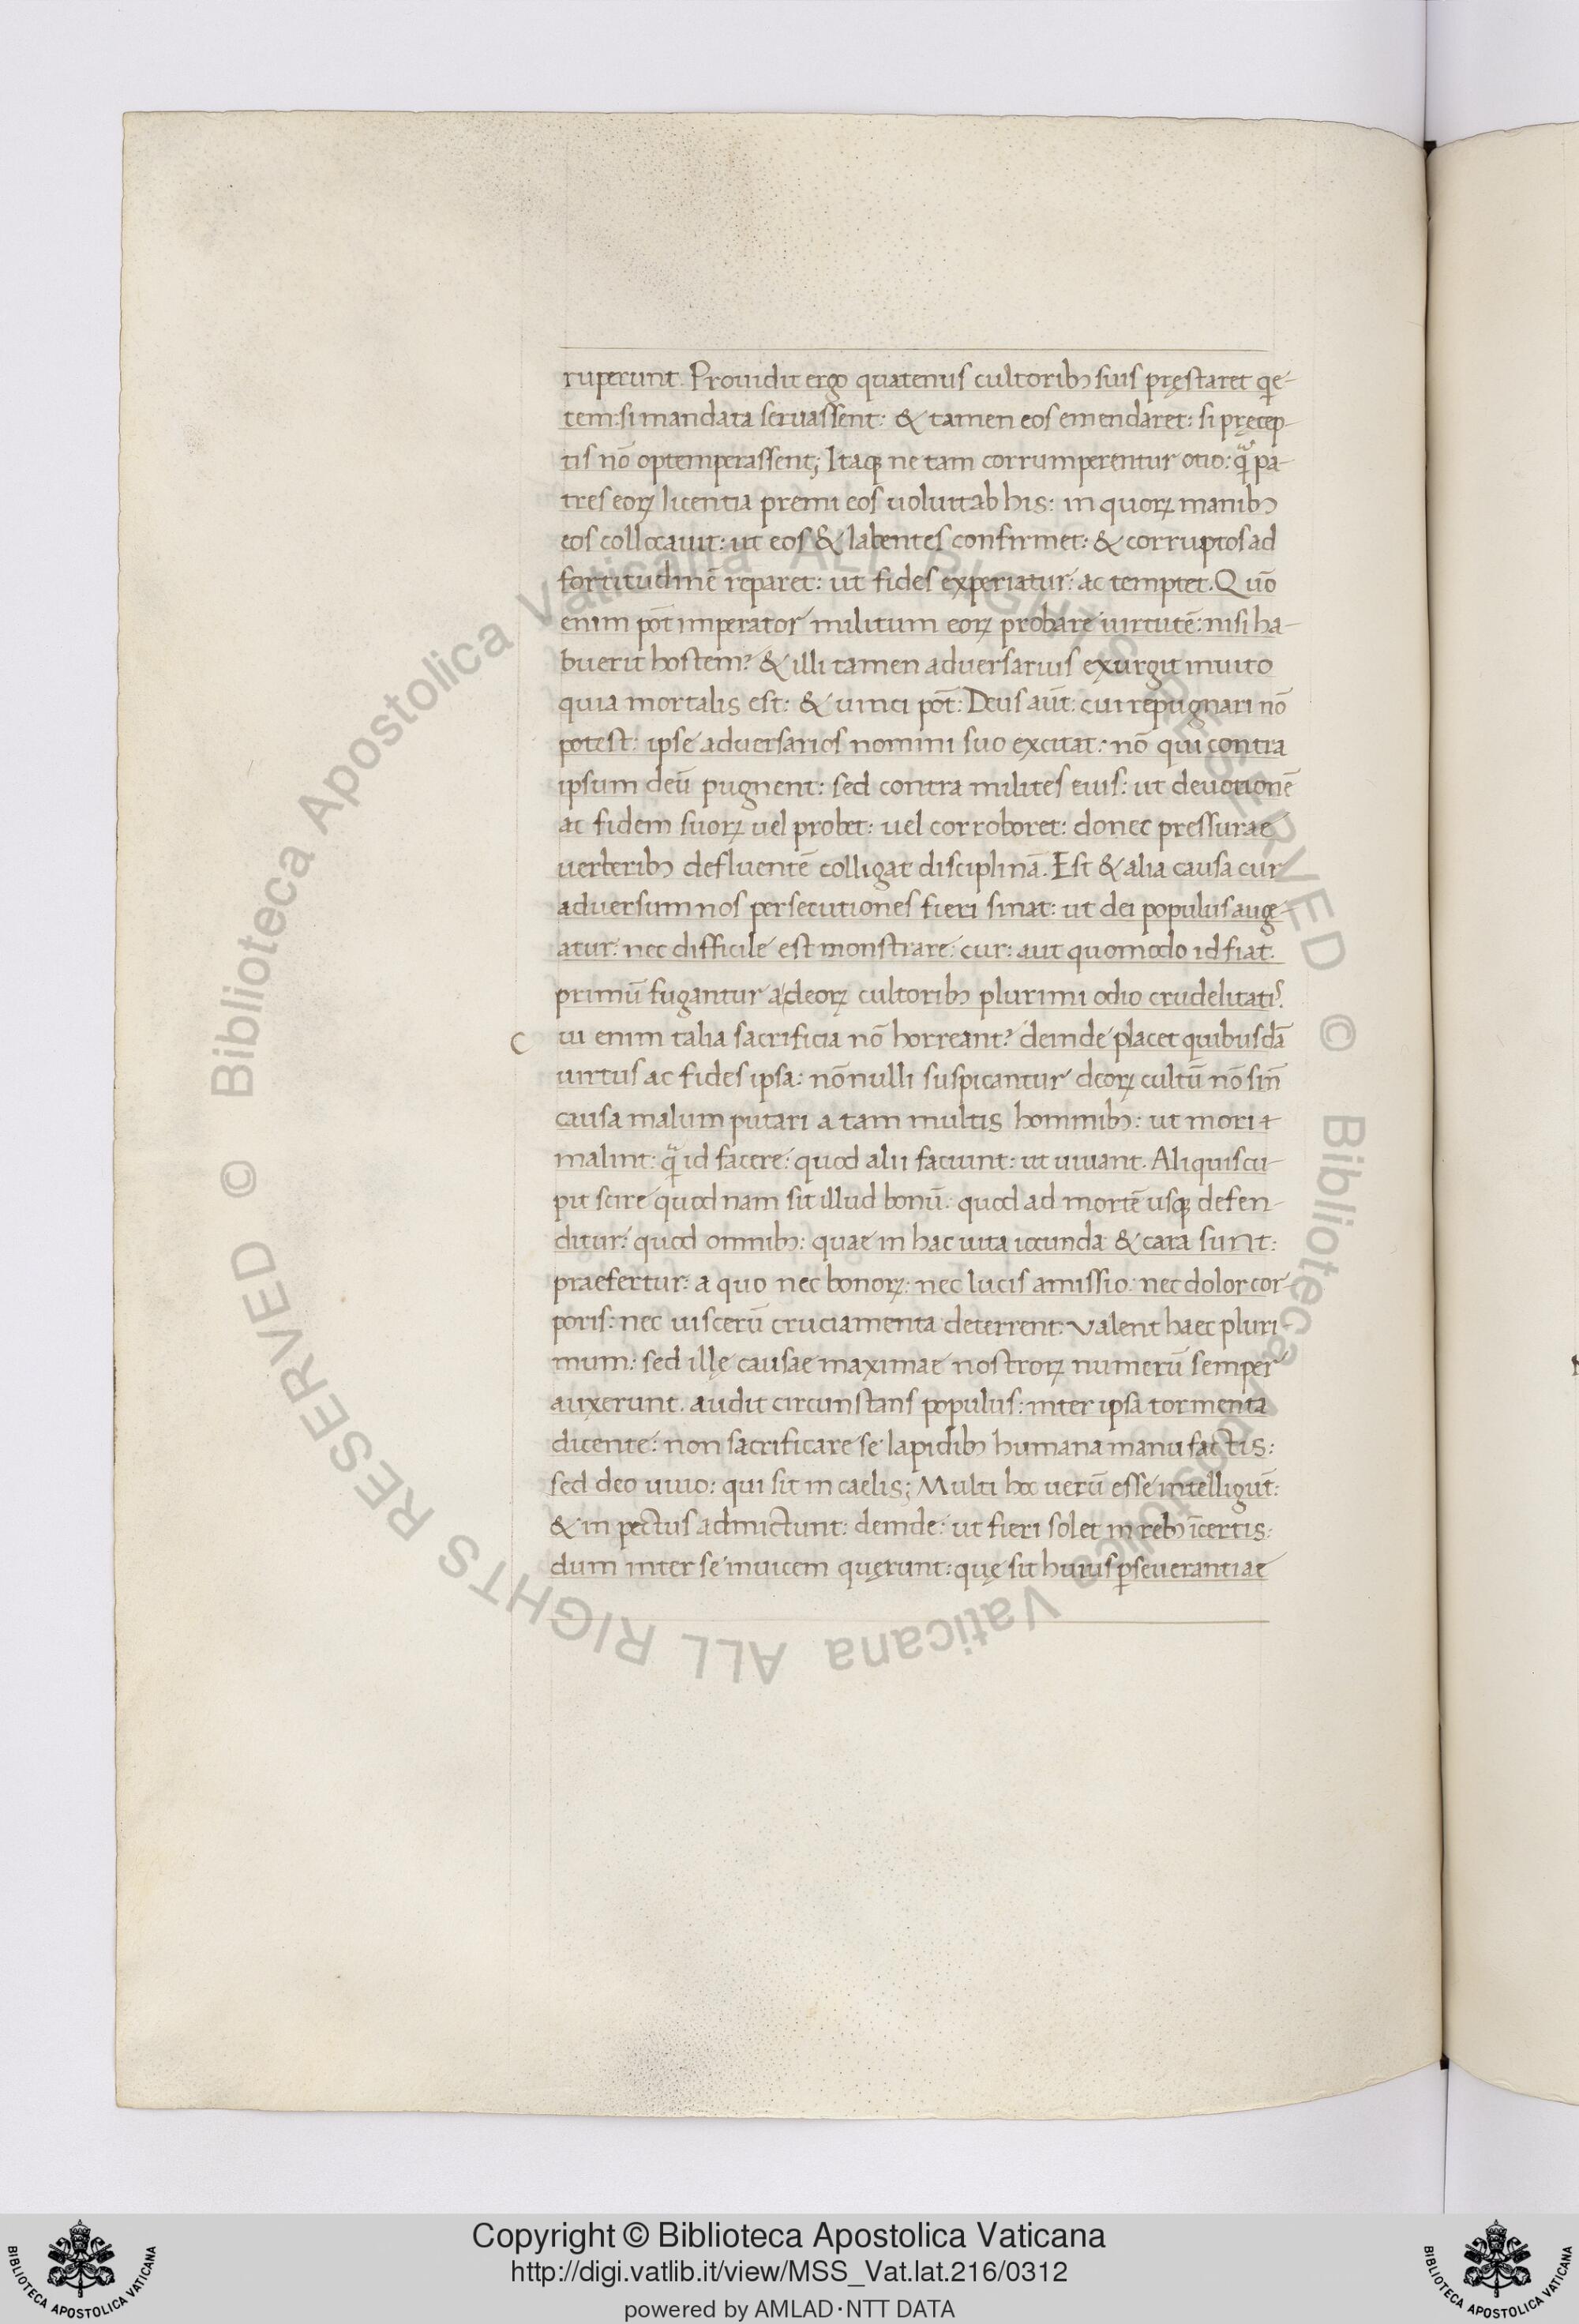 ruperunt. Prouidit ergo quatenus cultoribꝫ suis pręstaret qͥe-
tem: si mandata seruassent: & tamen eos emendaret: si pręcep-
tis nō optemperassent; Itaqꝫ ne tam corrumperentur otio: qͣ pa-
tres eorꝝ licentia premi eos uoluit ab his: in quorꝝ manibꝫ
eos collocauit: ut eos & labentes confirmet: & corruptos ad
fortitudinē reparet: ut fides experiatur: ac temptet. Quō
enim pōt imperator militum eorꝝ probare uirtutē: nisi ha-
buerit hostem? & illi tamen aduersarius exurgit inuito
quia mortalis est: & uinci pōt: Deus aūt: cui repugnari nō
potest: ipse aduersarios nomini suo excitat: nō qui contra
ipsum deū pugnent: sed contra milites eius: ut deuotionē
ac fidem suorꝝ uel probet: uel corroboret: donec pressurae
uerberibꝫ defluentē colligat disciplinā. Est & alia causa cur
aduersum nos persecutiones fieri sinat: ut dei populus auge-
atur: nec difficile est monstrare: cur: aut quomodo id fiat.
primū fugantur a deorꝝ cultoribꝫ plurimi odio crudelitatis.
c ui enim talia sacrificia nō horreant? deinde placet quibusdā
uirtus ac fides ipsa: nōnulli suspicantur deorꝝ cultū nō sin̄
causa malum putari a tam multis hominibꝫ: ut mori
malint: qͣ id facere: quod alii faciunt: ut uiuant. Aliquis cu-
pit scire quod nam sit illud bonū: quod ad mortē usqꝫ defen-
ditur: quod omnibꝫ: quae in hac uita iocunda & cara sunt:
praefertur: a quo nec bonorꝝ: nec lucis amissio: nec dolor cor-
poris: nec uiscerū cruciamenta deterrent: Valent haec pluri
mum: sed illę causae maximae nostrorꝝ numerū semper
auxerunt. audit circunstans populus: inter ipsa tormenta
dicente: non sacrificare se lapidibꝫ humana manu factis:
sed deo uiuo: qui sit in caelis; Multi hoc uerū esse intelligūt:
& in pectus admictunt: deinde: ut fieri solet in rebꝫ īcertis:
dum inter se inuicem quęrunt: quę sit huius ꝑseuerantiae
© Biblioteca Apostolica Vaticana ALL RIGHTS RESERVED © Biblioteca Apostolica Vaticana ALL RIGHTS RESERVED
BIBLIOTECA APOSTOLICA VATICANA
Copyright © Biblioteca Apostolica Vaticana
http://digi.vatlib.it/view/MSS_Vat.lat.216/0312
powered by AMLAD·NTT DATA
BIBLIOTECA APOSTOLICA VATICANA